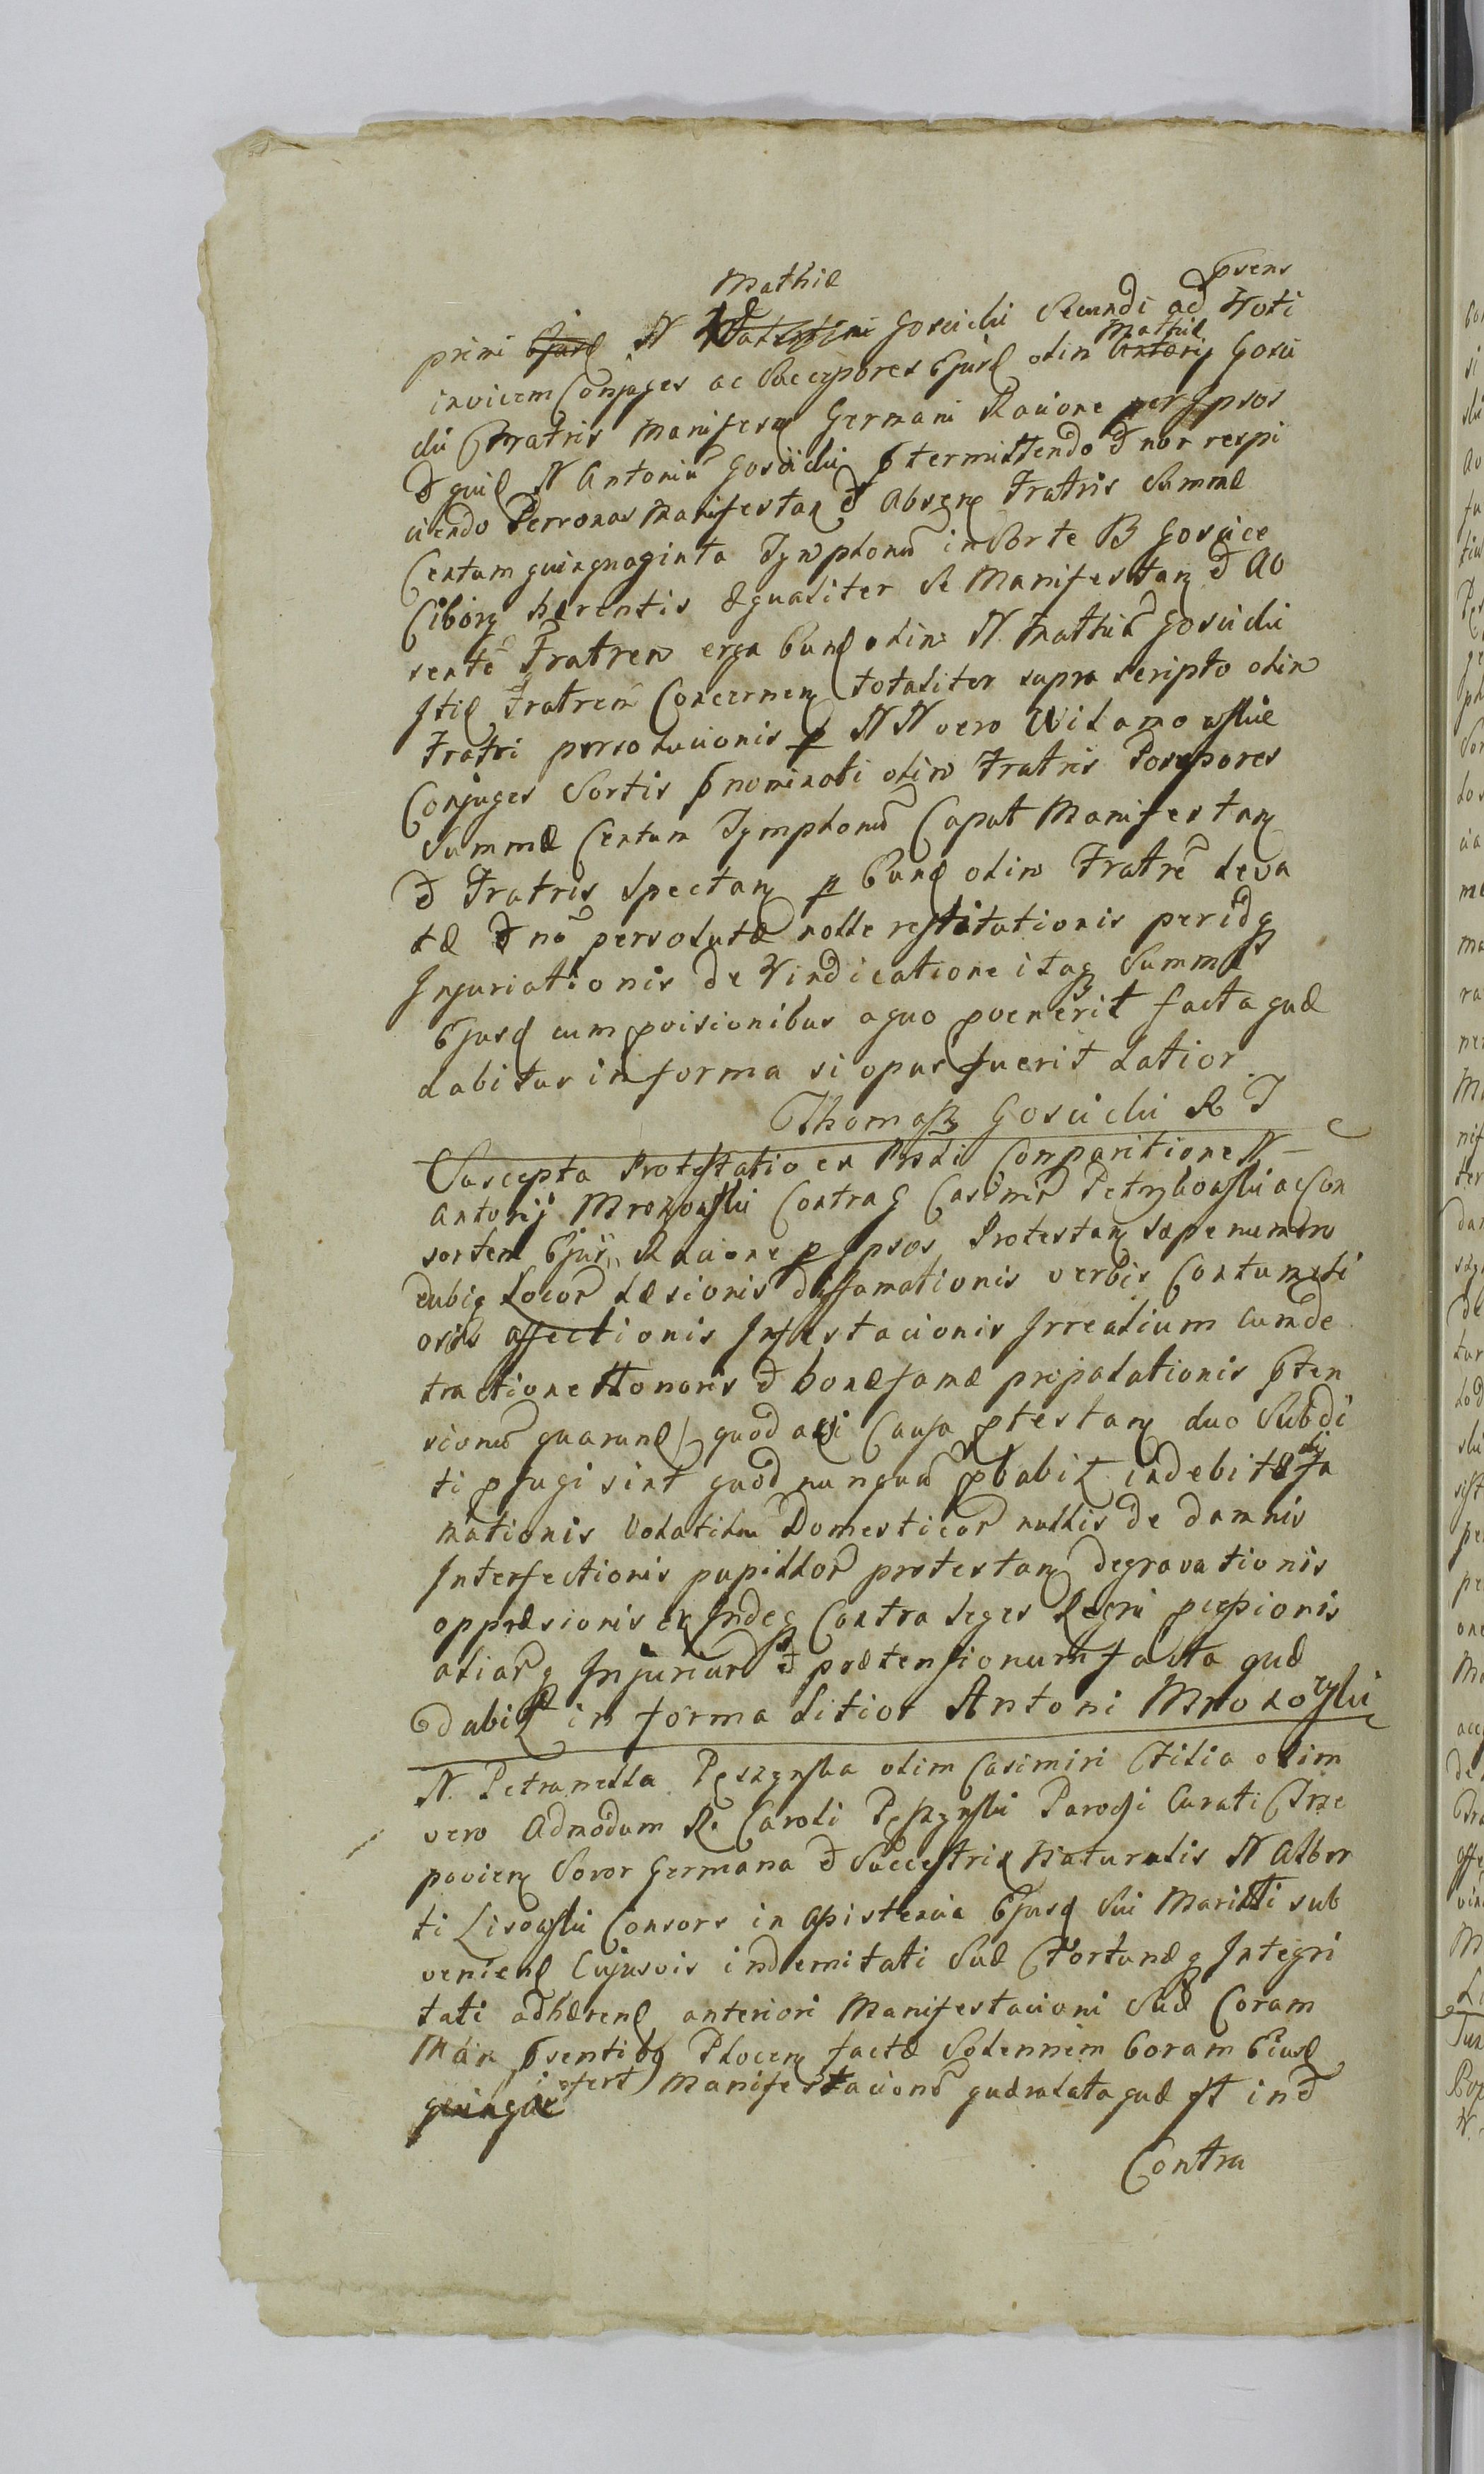 Mathiæ psens
primi N Gościcki Secundi ad Voti
invicem Conjuges ac Successores Ejusd olim Mathiæ Gosci
cki Fratris Manifesn Germani Racione per Ipsos
quid N Antoniu Goscicki ptermittendo & non respi
ciendo Personas Manifestan & Absen Fratris Summæ
Centum quinquaginta Tynphonu in Sorte B Goscice
Ciborz hærentis æqualiter se Manifestan & Ab
sente Fratrem erga Eund olim N. Mathia Goscicki
Itid Fratrem Concernen totaliter supra scripto olim
Fratri persolucionis p N N vero Conjuges
Sortis pnominati olim Fratris Possessores
Summæ Centum Tymphonu Caput Manifestan
& Fratris Spectan p Eund olim Fratre leva
tæ & no persolutæ nolle restitutionis peridq
Injuriationis de Vindicatione itaq Summæ
Ejusd cum pvisionibus a quo pvenerit facta quæ
dabitur in forma si opus fuerit latior.
Thomasz Goscicki R T
Suscepta Protestatio ex Psnli Comparitione N
Antonij Mrozowski Contra G Casimir Petrykowski ac Con
sortem Ejus Racione p Ipsos Protestan sæpe numero
et ubiq Locor læsionis diffamationis verbis Contumeli
osis affectionis Infestacionis Irrealium cum de
tractione Honoris & bonæ famæ propalationis pten
sionu quarund quod Causa ptestan duo Subdi
ti pfugi sint quod nunquam pbabit indebitæ dif
famationis Volatiliu Domesticor nullis de damnis
Interfectionis pupillor protestan degravationis
oppræsionis ex Indeq Contra Leges Regni
aliarq Injuriar & prætensionum facta quæ
dabit in forma litior Antoni Mrozowski
N. Petrunella olim Casimiri Filia olim
vero Admodum R. Caroli Parochi Curati
Soror Germana & Successtrix Naturalis N Alber
ti Lisowski Consors in Assistencia Ejusd Sui Mariti sub
veniend Cujusvis indemnitati Suæ Fortunæq Integri
tati adhærend anteriori Manifestacioni Suæ Coram
psentibq Plocen factæ Solennem Coram Eisd
ifert Manifestacione quæ lata quæ st in &
Contra